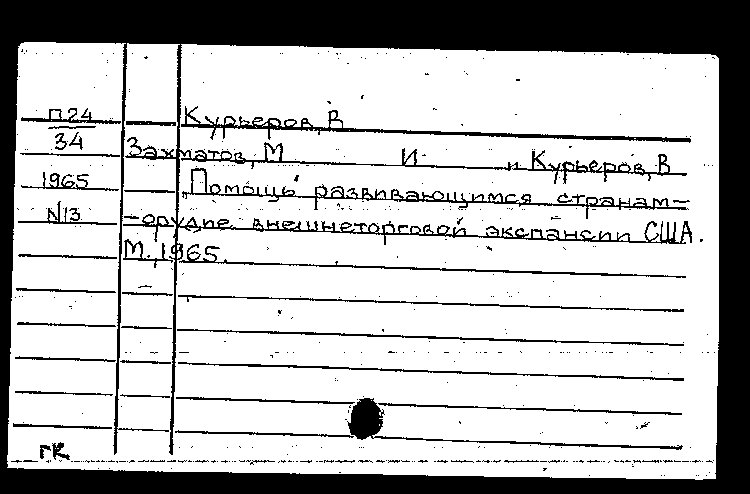 П24 Курьеров, В
34 Захматов, М И и Курьеров, В
1965 „Помощь" развивающимся странам-
N13 -орудие внешнеторговой экспансии США.
М., 1965.
ГК